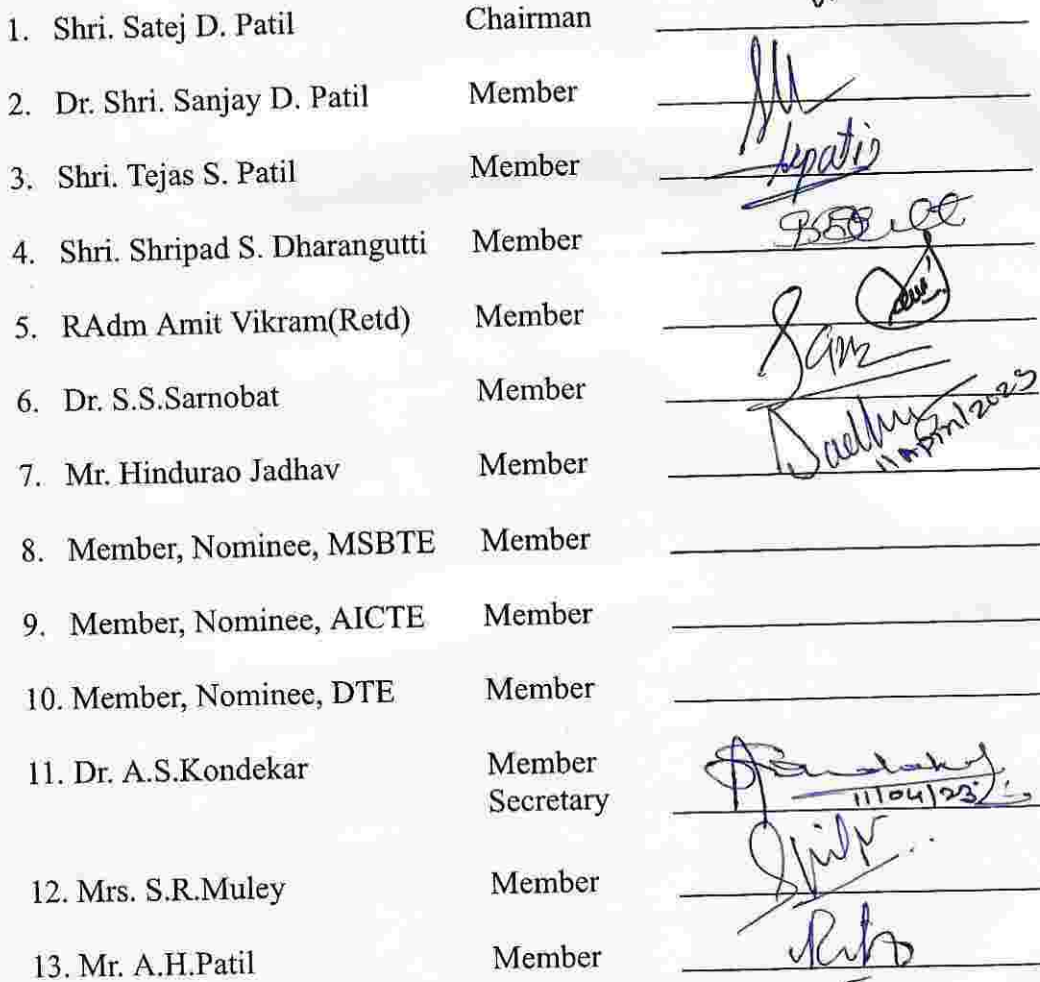 1. Shri. Satej D. Patil Chairman
2. Dr. Shri. Sanjay D. Patil Member
3. Shri. Tejas S. Patil Member
4. Shri. Shripad S. Dharangutti Member
5. RAdm Amit Vikram(Retd) Member
6. Dr. S.S.Sarnobat Member
11 April 2023
7. Mr. Hindurao Jadhav Member
8. Member, Nominee, MSBTE Member
9. Member, Nominee, AICTE Member
10. Member, Nominee, DTE Member
11. Dr. A.S.Kondekar Member
Secretary 11/04/23
12. Mrs. S.R.Muley Member
13. Mr. A.H.Patil Member